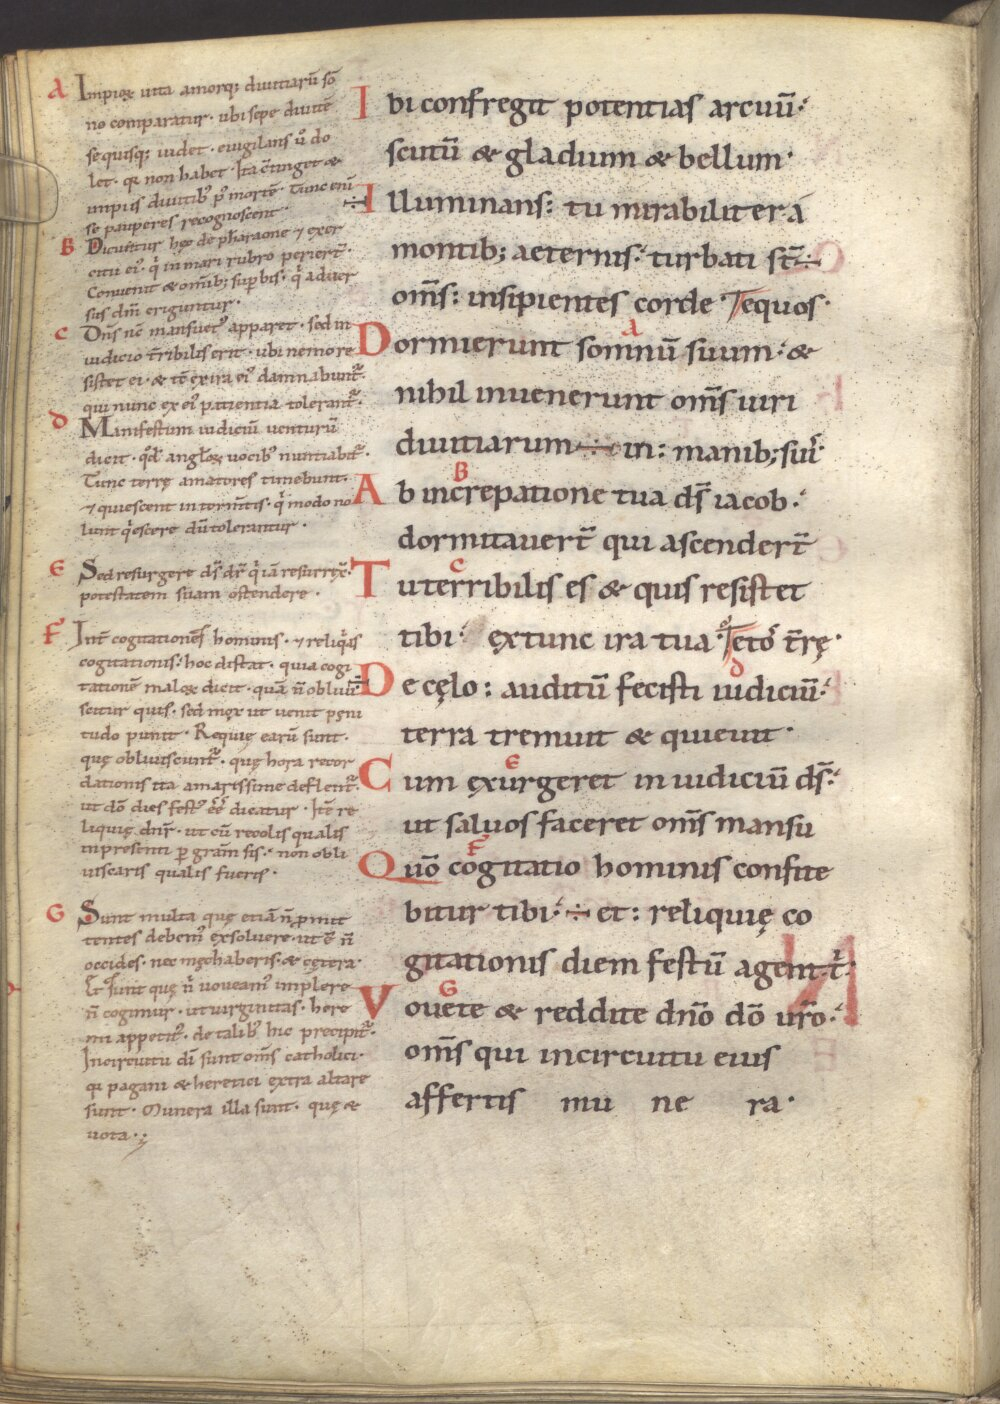 A Impioꝝ uita amorq; diuitiarū sō
no comparatur · ubi sepe diuitē
se quisq; uidet · euigilans u̅o do
let · qꝛ non habet · Ita ↄ̄tinget &
impiis diuitib; p̄ morte · Tunc eni
se pauperes recognoscent ·
B Dicuntur hęc de pharaone ⁊ exer
citu ei; q̇ in mari rubro perierт̄ ·
Conuenit & omīb; supbis · q̇ aduer
sus dm̄ eriguntur ·
C Dn̄s nc̄ mansuet; apparet · sed in
iudicio t̄ribilis erit · ubi nemo re
sistet ei · & tc̄ ex ira ei; damnabunt̄ ·
qui nunc ex ei; patientia tolerant̄ ·
D Manifestum iudiciū uenturū
dicit · qd̄ angl̄oꝝ uocib; nuntiabit̄ ·
Tunc terrę amatores timebunt ·
⁊ quiescent in torm̄tis · q̇ modo no
lunt q̇escere dū tolerantur ·
E Sed resurgere ds̄ dr̄ q̇ iā resurrex̄ ·
potestatem suam ostendere ·
F Int̄ cogitationes hominis · ⁊ reliq̇as
cogitationis · hoc distat · quia cogi
tationē maloꝝ dicit · quā n̄ obliui
scitur quis · sed mox ut uenit pęni
tudo punit · Requię earū sunt ·
quę obliuiscunt̄ · quę hora recor
dationis ita amarissime deflent̄
ut dō dies fest; e̅e̅ dicatur · Itē re
liquię dn̄r · ut cū recolis qualis
in presenti p gram̄ sis · non obli
uiscaris qualis fueris ·
G Sunt multa quę etiā n̄ pmit
tentes debem; exsoluere · ut ē n̄
occides · nec męchaberis · & cętera ·
Et sunt quę n̄ uoueam; implere
n̄ cogimur · ut uirginitas · here
mi appetit; · de talib; hic precipit̄ ·
In circuitu dī sunt om̄s catholici ·
qꝛ pagani & heretici extra altare
sunt · Munera illa sunt · quę &
uota ·;
Ibi confregit potentias arcuū ·
scutū & gladium & bellum ·
÷Illuminans: tu mirabiliter a
montib; aeternis · turbati st̄ ÷
om̄s: insipientes corde · Tequos ·
Dormierunt somnū suum · &
nihil inuenerunt om̄s uiri
diuitiarum ÷ in: manib; sui̅s
Ab increpatione tua ds̄ iacob ·
dormitauert̄ qui ascendert̄
Tu terribilis es & quis resistet
tibi · extunc ira tua · Tetō t̄rę ·
De cęlo: auditū fecisti iudiciū ·
terra tremuit & quieuit ·
Cum exurgeret in iudiciū ds̄ ·
ut saluos faceret om̄s mansu
Quō cogitatio hominis confite
bitur tibi · ÷ et: reliquię co
gitationis diem festū agent t̄ ·
Vouete & reddite dn̄o dō ur̄o ·
om̄s qui in circuitu eius
affertis mu ne ra ·